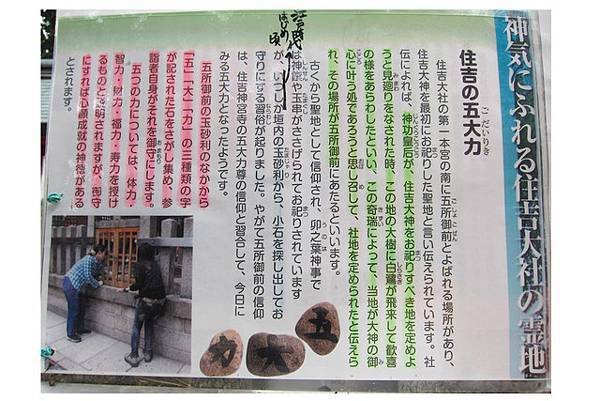 神気にふれる住吉大社の霊地
住吉の五大力
ごだいりき
住吉大社の第一本宮の南に五所御前とよばれる場所があり、
住吉大神を最初にお祀りした聖地と言い伝えられています。社
伝によれば、神功皇后が、住吉大神をお祀りすべき地を定めよ
うと見廻りをなされた時、この地の大樹に白鷺が飛来して歓喜
の様をあらわしたといい、この奇瑞によって、当地が大神の御
心に叶う処であろうと思し召して、社地を定められたと伝えら
れ、その場所が五所御前にあたるといいます。
古くから聖地として信仰され、卯之葉神事で
は神饌や玉串がささげられてお祀りされています
江戸時代の
はじめ頃
が、いつしか垣内の玉砂利から、小石を探し出してお
守りにする習俗が起りました。やがて五所御前の信仰
は、住吉神宮寺の五大力尊の信仰と習合して、今日に
みる五大力となったようです。
五所御前の玉砂利のなかから
「五」「大」「力」の三種類の字
が記された石をさがし集め、参
詣者自身がそれを御守にします。
五つの力については、体力・
智力・財力・福力・寿力を授け
るものと説明されますが、御守
にすれば心願成就の神徳がある
とされます。
五
大
力